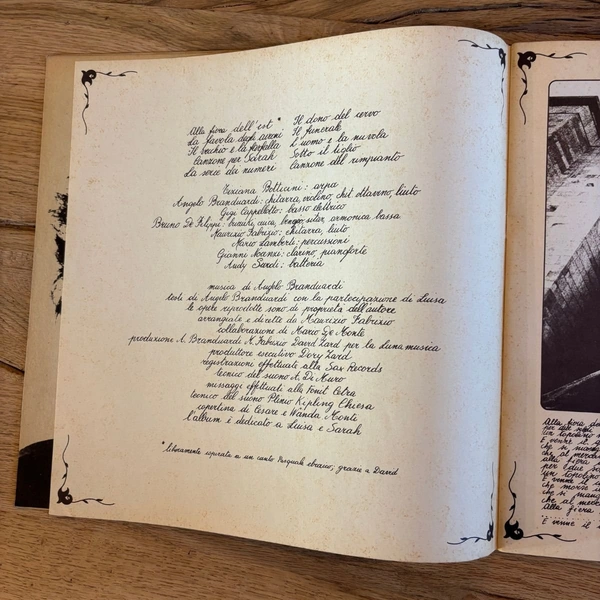 Alla fiera dell'est *
La favola degli aironi
Il vecchio e la farfalla
Canzone per Sarah
La serie dei numeri
Il dono del cervo
Il funerale
L'uomo e la nuvola
Sotto il tiglio
Canzone del rimpianto
Tiziana Botticini: arpa
Angelo Branduardi: chitarra, violino, chit. ottavino, liuto
Gigi Cappellotto: basso elettrico
Bruno De Filippi: bouzuki, banjo, sitar, armonica bassa
Maurizio Fabrizio: chitarra, liuto
Mario Lamberti: percussioni
Gianni Nocenzi: clarino, pianoforte
Andy Surdi: batteria
musica di Angelo Branduardi
testi di Angelo Branduardi con la partecipazione di Luisa
le opere riprodotte sono di proprietà dell'autore
arrangiate e dirette da Maurizio Fabrizio
collaborazione di Mario De Monte
produzione A. Branduardi M. Fabrizio David Zard per la Luna musica
produttore esecutivo Dory Zard
registrazioni effettuate alla Sax Records
tecnico del suono A. Di Muro
missaggi effettuati alla Fonit Cetra
tecnico del suono Plinio Kipling Chiesa
copertina di Cesare e Wanda Monti
l'album è dedicato a Luisa e Sarah
* liberamente ispirata a un canto Pasquale ebraico; grazie a David
Alla fiera
per due soldi
un topolino
E venne il
che si mangiò
che al mercato
alla fiera
per due soldi
un topolino
E venne il
che morse il
che si mangiò
che al mercato
Alla fiera
E venne il